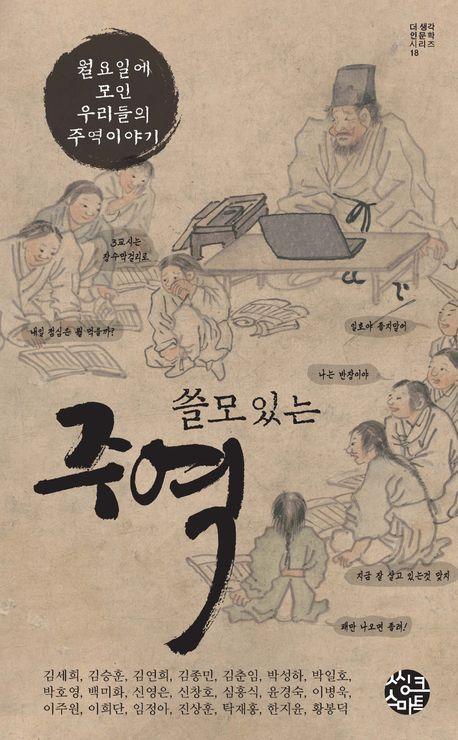 더 생 각
인 문 학
시 리 즈
18
월요일에
모인
우리들의
주역이야기
3교시는
장수막걸리로
내일 점심은 뭘 먹을까?
일호야 졸지말어
나는 반장이야
쓸모있는
주역
지금 잘 살고 있는것 맞지
괘만 나오면 졸려!
김세희, 김승훈, 김연희, 김종민, 김춘임, 박성하, 박일호,
박호영, 백미화, 신영은, 신창호, 심홍식, 윤경숙, 이병욱,
이주원, 이희단, 임정아, 진상훈, 탁재홍, 한지윤, 황봉덕
씽크
스마트